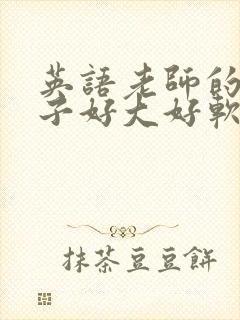 英語老師的
子好大好軟
抹茶豆豆餅